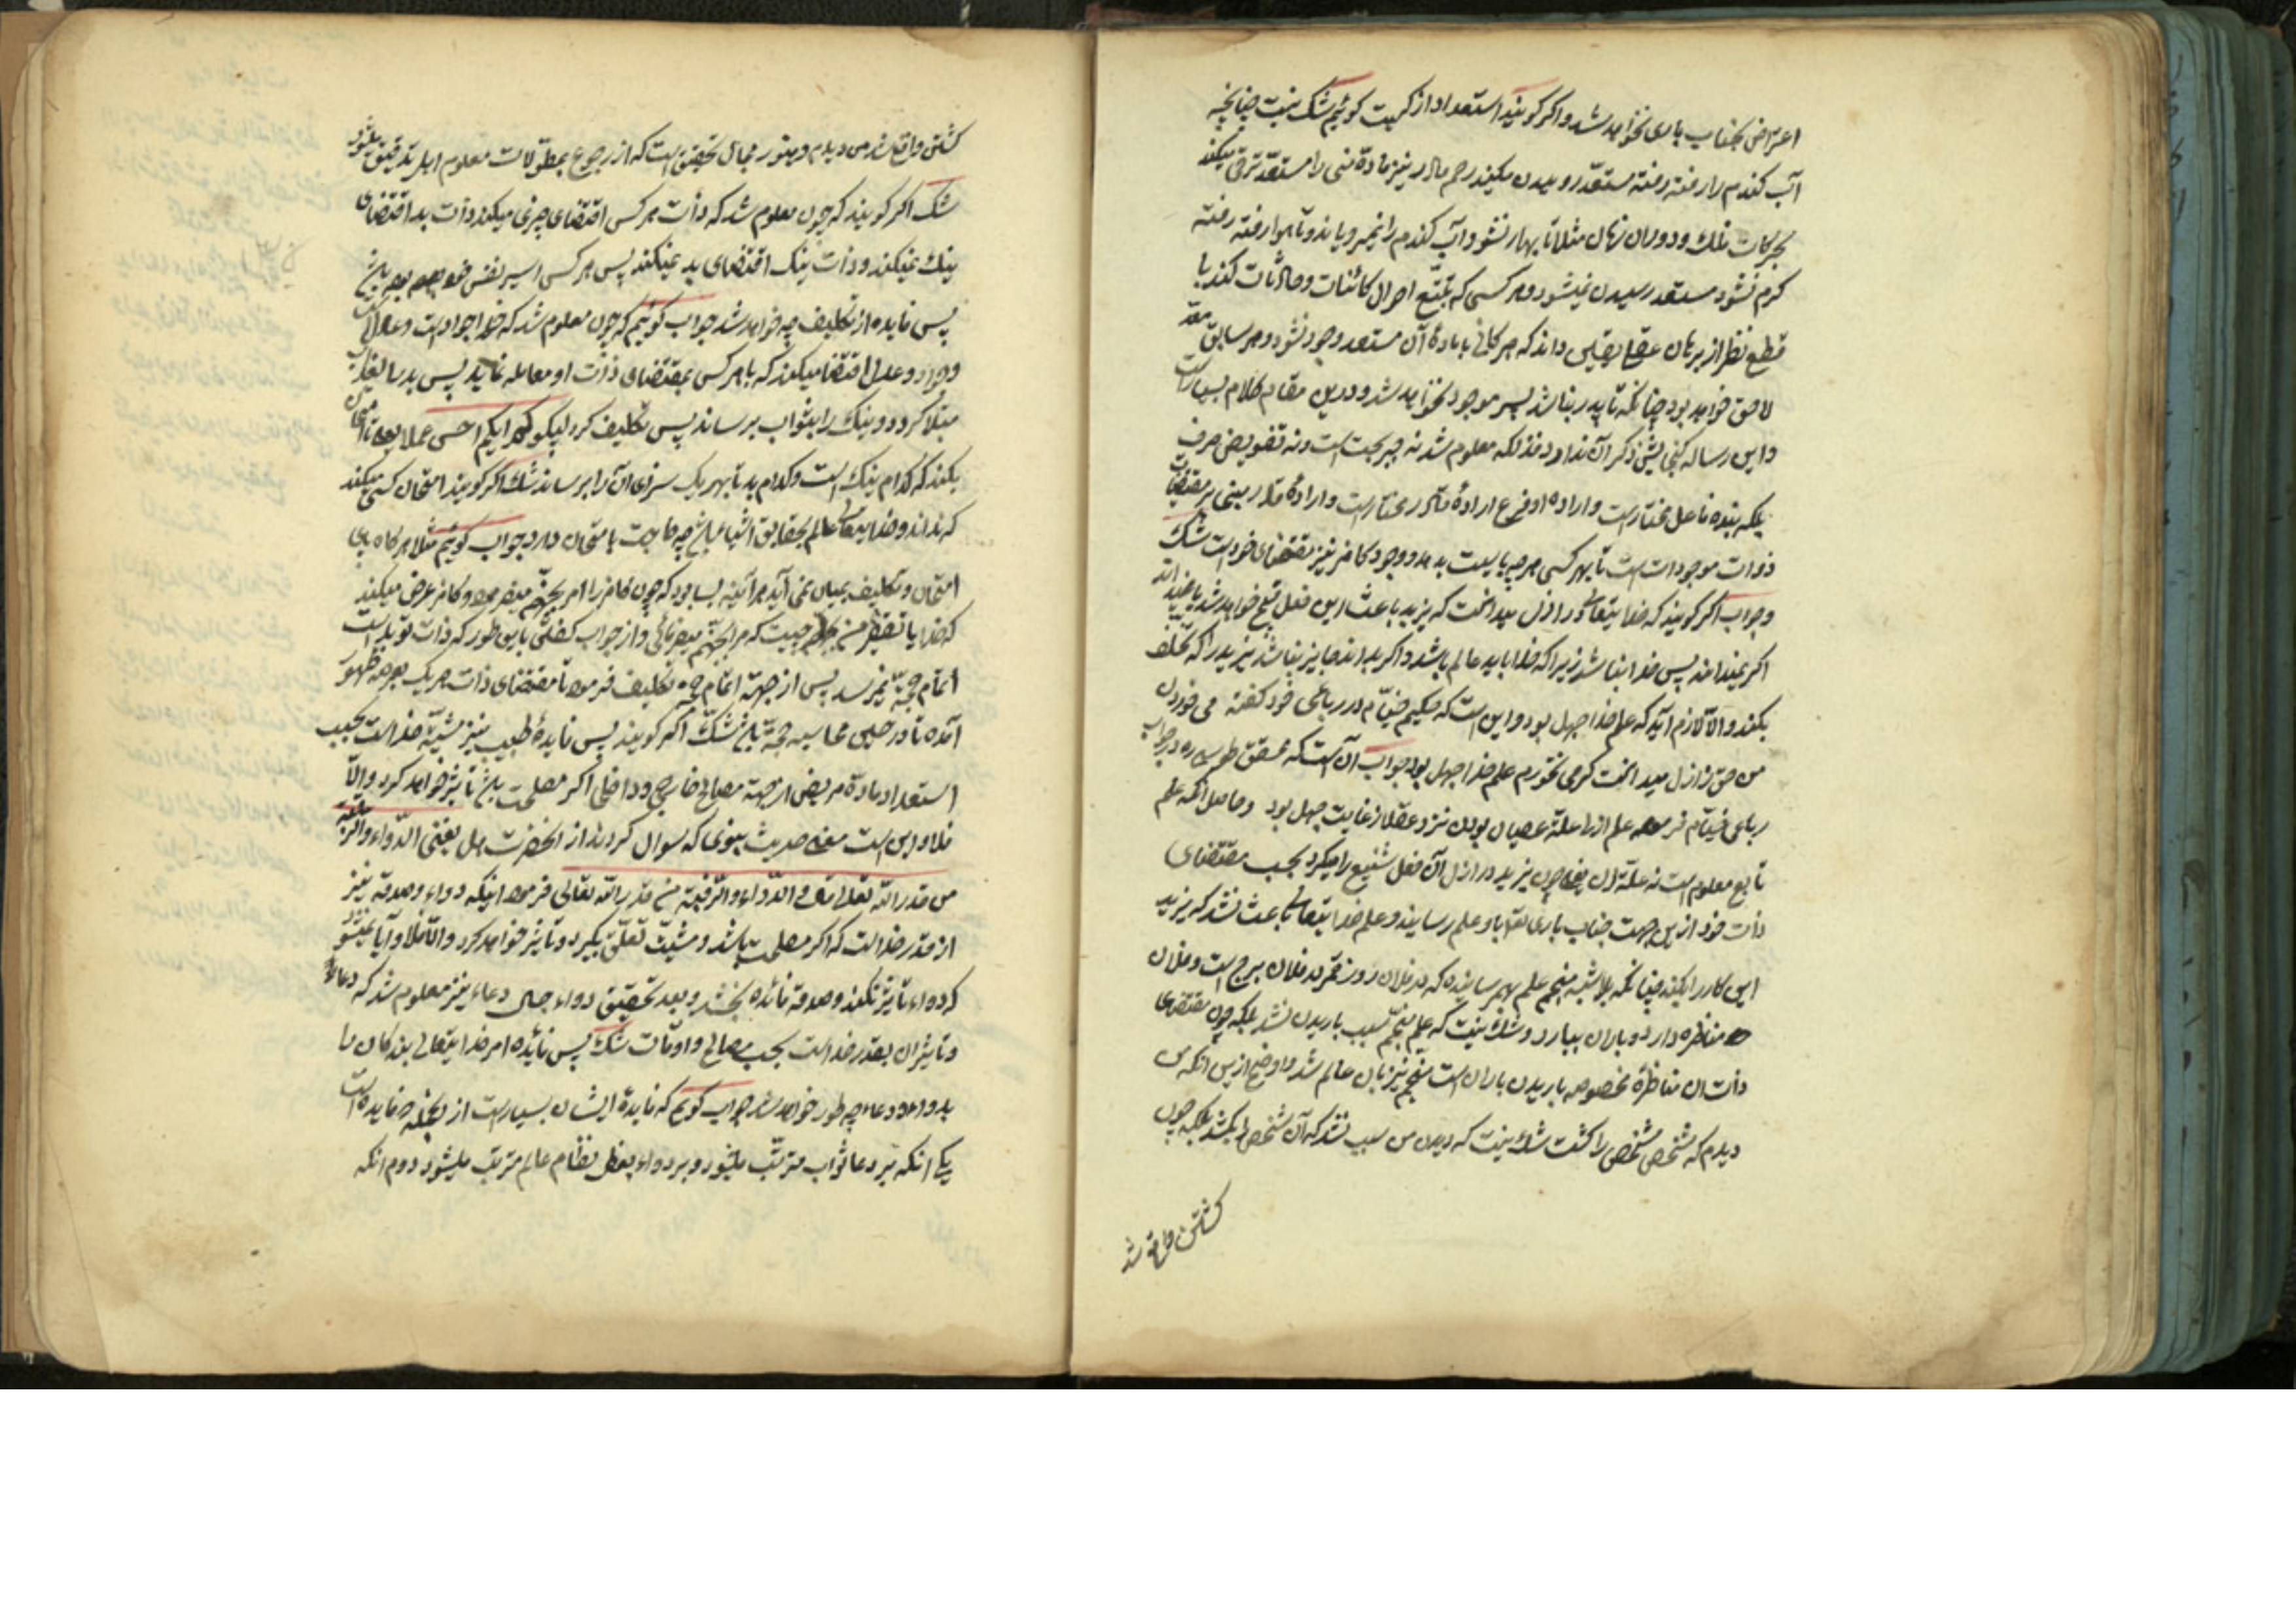 اعتراض بجناب باری نخواهد شد و اکر کویند استعداد از کیست کوئیم شک نیست چنانچه
آب کندم را رفته رفته مستعد روییدن میکند رحم مادر نیز مادهٔ منی را مستعد ترقی میکند
بحرکات فلک و دوران زمان مثلا تا بهار نشود آب کندم را نمیرویاند و تا هوا رفته رفته
کرم نشود مستعد رسیدن نمیشود و هر کسی که تتبع احوال کائنات و حادثات کند با
قطع نظر از برهان عقلی یقین داند که هر کائنی تا مادهٔ آن مستعد وجود نشود و هر سابق معد
لاحق خواهد بود چنانکه تا پدر نباشد پسر موجود نخواهد شد و درین مقام کلام بسیار است
و این رساله کنجایش ذکر آن ندارد فذلکه معلوم شد نه جبر بحت است و نه تفویض صرف
بلکه بنده فاعل مختار است و اراده او فرع ارادهٔ قادر مختار است و ارادهٔ قادر مبنی بر مقتضیات
ذوات موجودات است تا بهر کسی هر چه بایست بدهد و وجود کافر نیز مقتضای خود است شک
و جواب اکر کویند که خدایتعالی در ازل میدانست که یزید باعث این فعل قبیح خواهد شد یا نمیدانست
اکر نمیدانست پس خدا نباشد زیرا که خدا باید عالم باشد و اکر بداند جایز نباشد یزید را که تخلف
بکند و الا لازم آید که علم خدا جهل بود و این است که حکیم خیام در رباعی خود کفته می خوردن
من حق ز ازل میدانست کر می نخورم علم خدا جهل بود جواب آن است که محقق طوسی ره در جواب
رباعی خیام فرموده علم ازلی علت عصیان بودن نزد عقلا ز غایت جهل بود و حاصل آنکه علم
تابع معلوم است نه علت آن یعنی چون یزید در ازل آن فعل شنیع را میکرد بحسب مقتضای
ذات خود ازین جهت جناب باری تعالی باو علم رسانید و علم خدایتعالی باعث نشد که یزید
این کار را بکند چنانکه بلا شبه منجم علم بهم رسانیده که در فلان روز قمر در فلان برج است و فلان
مناظره دارد و باران ببارد و شک نیست که علم منجم سبب باریدن نشد بلکه چون مقتضای
ذات ان مناظرهٔ مخصوصه باریدن باران است منجم نیز بان عالم شد و اوضح ازین انکه من
دیدم که شخصی شخصی را کشت شک نیست که دیدن من سبب نشد که آن شخص را بکشد بلکه چون
کشتن واقع شد
کشتن واقع شد من دیدم و هنوز مجال تحقیق است که از رجوع بمطولات معلوم اهل تدقیق میشود
شک اکر کویند که چون معلوم شد که ذات هر کسی اقتضای چیزی میکند ذات بد اقتضای
نیک نمیکند و ذات نیک اقتضای بد نمیکند پس هر کسی اسیر نفس خود بوده
پس فایده از تکلیف چه خواهد شد جواب کوئیم که چون معلوم شد که خدا جواد است و عادل
وجود و عدل اقتضا میکند که با هر کسی بمقتضای ذات او معامله نماید پس بد را بعذاب
مبتلا کردد و نیک را بثواب برساند پس تکلیف کرد لیبلوکم ایکم احسن عملا یعنی تا امتحان
بکند که کدام نیک است و کدام بد تا بهر یک سزای آن را برساند شک اکر کویند امتحان کسی میکند
که نداند و خدایتعالی عالم بحقایق اشیا چه حاجت بامتحان دارد جواب کوئیم مثلا هر کاه پای
امتحان و تکلیف بمیان نمی آید هر آینه بسا بود که چون کافر را امر بجهنم میفرمود و کافر عرض میکند
که خدایا تقصیر من چیست که مرا بجهنم میفرمائی و از جواب کفتن باین طور که ذات تو بد است
اتمام حجه نمیرسد پس از جهة اتمام حجه تکلیف فرموده تا مقتضای ذات هر یک بعرصه ظهور
آمده تا در حین محاسبه حجة شک اکر کویند پس فایدهٔ طبیب نیز مشیة خداست بحسب
استعداد مادهٔ مریض از جهة مصالح خارجی و داخلی اکر مصلحت تاثیر خواهد کرد و الا
فلا و این است معنی حدیث نبوی که سوال کردند از آنحضرت هل یغنی الدواء و الرقیة
من قدر الله تعالی الدواء و الرقیة من قدر الله تعالی فرمود اینکه دواء و صدقه نیز
از قدر خداست که اکر مصلحت باشد و مشیت تعلق بکیرد و تاثیر خواهد کرد و الا فلا و آیا نمیشود
که دواء تاثیر نکند و صدقه فائده نبخشد و بعد تحقیق دواء حال دعاء نیز معلوم شد که دعاء
و تاثیر ان بقدر خداست بحسب مصالح و اوقات شک پس فائده امر خدایتعالی بندکان را
بدواء و دعاء چه طور خواهد شد جواب کویم که فایدهٔ ایشان بسیار است از انجمله فایده است
یکی انکه بر دعا ثواب مترتب میشود و بر دواء بعض نظام عالم مترتب میشود دوم انکه